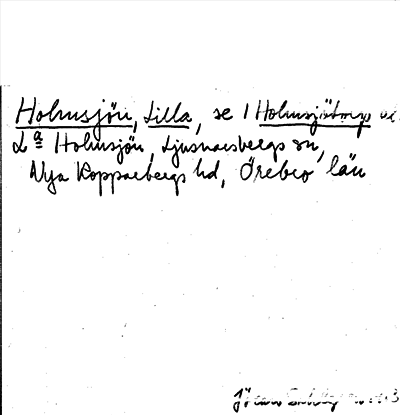 Holmsjön, Lilla, se 1 Holmsjötorp
Lª Holmsjön, Ljusnarsbergs sn,
Nya Kopparbergs hd, Örebro län
Jöran